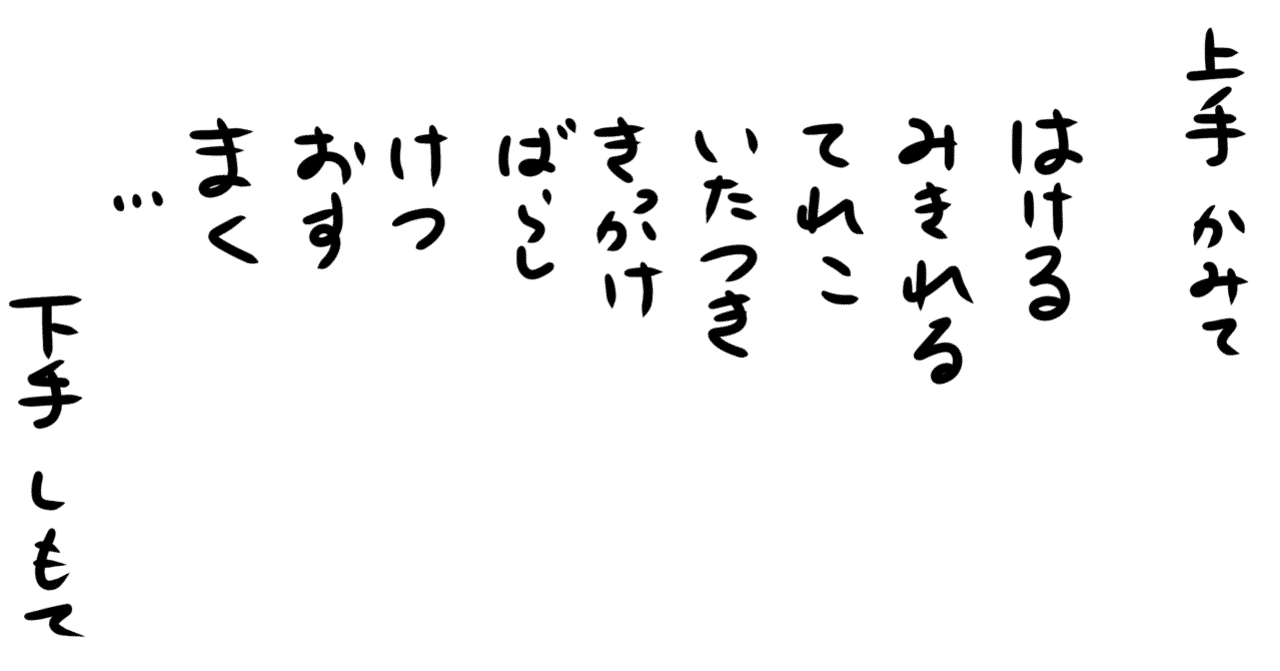 上手 かみて
はける
みきれる
てれこ
いたつき
きっかけ
ばらし
けつ
おす
まく
…
下手 しもて